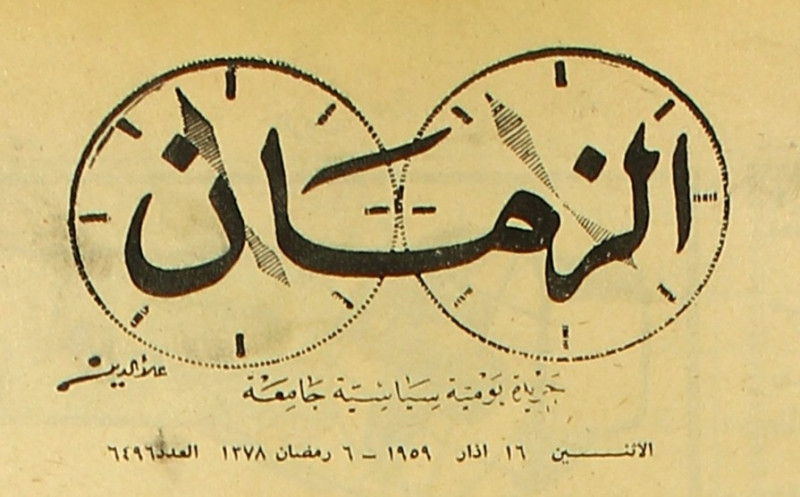 الزمان
علاءالدين
جريدة يومية سياسية جامعة
الاثنــــين ١٦ اذار ١٩٥٩ – ٦ رمضان ١٣٧٨ العدد ٦٤٩٦